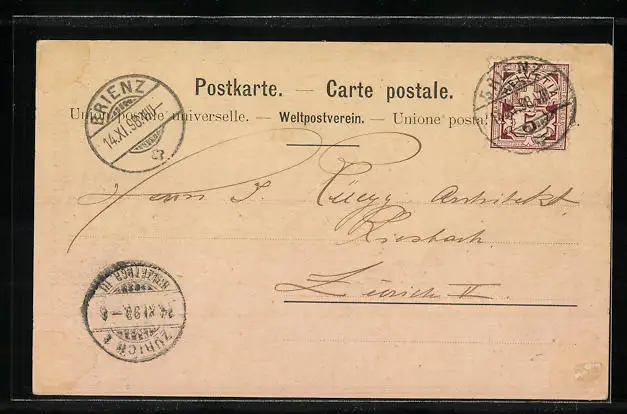 Postkarte. — Carte postale.
Union postale universelle. — Weltpostverein. — Unione postale
BRIENZ
14.XI.98.XIII
HELVETIA
5
Herrn J. Rüegg Architekt
Riesbach
Zürich V.
ZÜRICH
14.XI.98.–8
BRFZ.TRGR.III